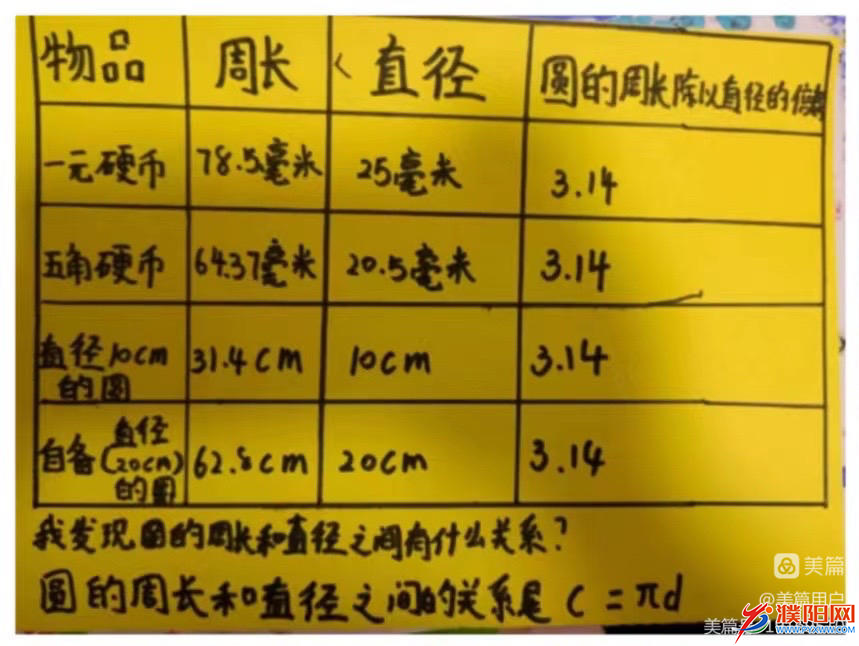 物品 周长 直径 圆的周长除以直径的倍数
一元硬币 78.5毫米 25毫米 3.14
五角硬币 64.37毫米 20.5毫米 3.14
直径10cm 31.4cm 10cm 3.14
的圆
直径
自备(20cm) 62.8cm 20cm 3.14
的圆
我发现圆的周长和直径之间有什么关系?
圆的周长和直径之间的关系是 C=πd
美篇
@美篇用户
美篇号:1
濮阳网
WWW.PYXWW.COM